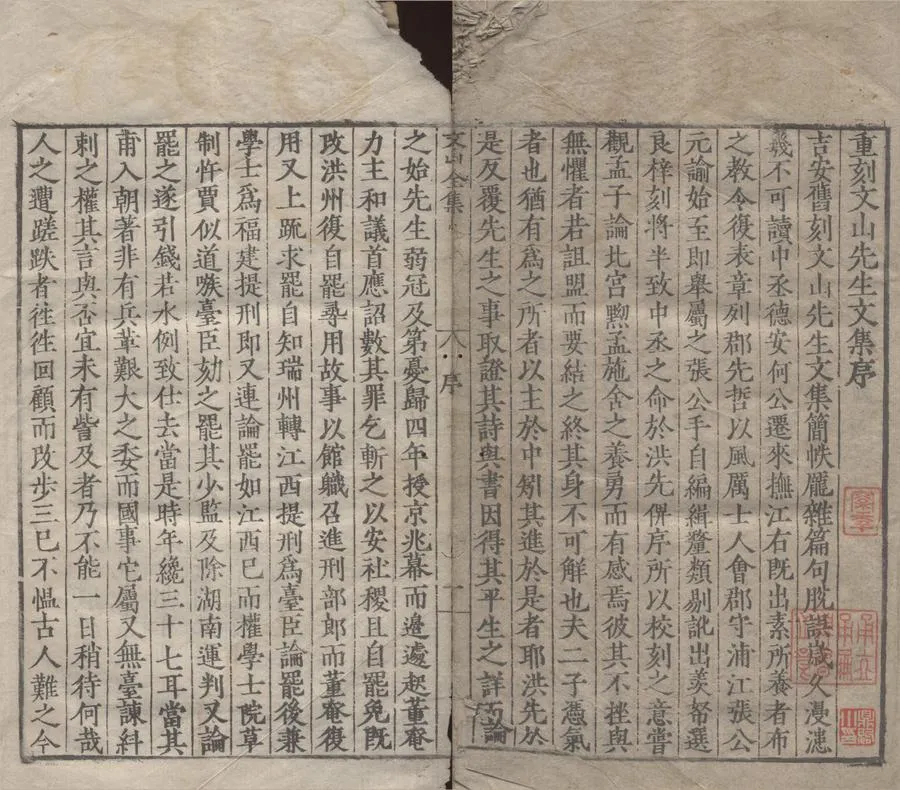 重刻文山先生文集序
吉安舊刻文山先生文集簡帙龎雜篇句脫誤歲久漫漶
幾不可讀中丞德安何公遷來撫江右旣出素所養者布
之教令復表章列郡先哲以風厲士人會郡守浦江張公
元諭始至即舉屬之張公手自編緝釐類剔訛出羨帑選
良梓刻將半致中丞之命於洪先俾序所以校刻之意嘗
觀孟子論北宫黝孟施舍之養勇而有感焉彼其不挫與
無懼者若詛盟而要結之終其身不可解也夫二子憑氣
者也猶有爲之所者以主於中矧其進於是者耶洪先於
是反覆先生之事取證其詩與書因得其平生之詳而論
文山全集
序
一
之始先生弱冠及第憂歸四年授京兆幕而邊遽起董庵
力主和議首應詔數其罪乞斬之以安社稷且自罷免旣
改洪州復自罷尋用故事以館職召進刑部郎而董庵復
用又上疏求罷自知瑞州轉江西提刑爲臺臣論罷後兼
學士爲福建提刑即又連論罷如江西已而權學士院草
制忤賈似道嗾臺臣劾之罷其少監及除湖南運判又論
罷之遂引錢若水例致仕去當是時年纔三十七耳當其
甫入朝著非有兵革艱大之委而國事它屬又無臺諫糾
刺之權其言與否宜未有訾及者乃不能一日稍待何哉
人之遭蹉跌者徃徃回顧而改步三已不愠古人難之今